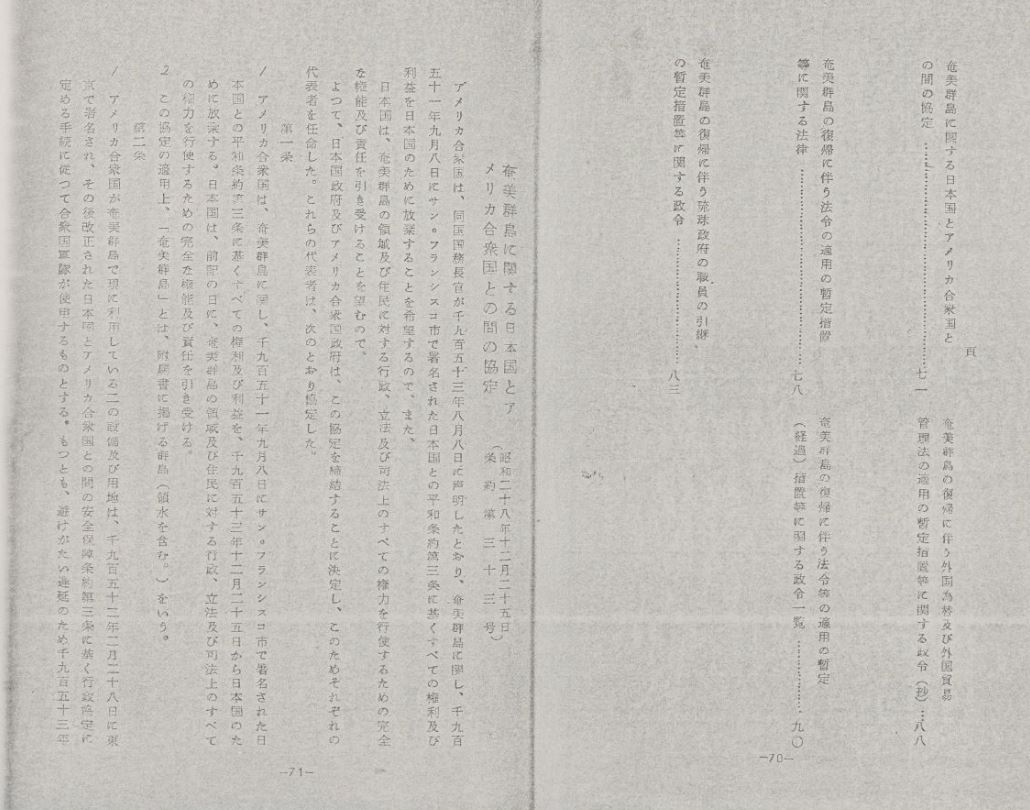 頁
奄美群島に関する日本国とアメリカ合衆国と
の間の協定 …………………………七一
奄美群島の復帰に伴う法令の適用の暫定措置
等に関する法律 …………………………七八
奄美群島の復帰に伴う琉球政府の職員の引継
の暫定措置等に関する政令 …………………八三
奄美群島の復帰に伴う外国為替及び外国貿易
管理法の適用の暫定措置等に関する政令(抄)…八八
奄美群島の復帰に伴う法令等の適用の暫定
(経過)措置等に関する政令一覧 …………九〇
—70—
奄美群島に関する日本国とア
メリカ合衆国との間の協定
(昭和二十八年十二月二十五日
条約第三十三号)
アメリカ合衆国は、同国国務長官が千九百五十三年八月八日に声明したとおり、奄美群島に関し、千九百
五十一年九月八日にサン・フランシスコ市で署名された日本国との平和条約第三条に基くすべての権利及び
利益を日本国のために放棄することを希望するので、また、
日本国は、奄美群島の領域及び住民に対する行政、立法及び司法上のすべての権力を行使するための完全
な権能及び責任を引き受けることを望むので、
よつて、日本国政府及びアメリカ合衆国政府は、この協定を締結することに決定し、このためそれぞれの
代表者を任命した。これらの代表者は、次のとおり協定した。
第一条
1 アメリカ合衆国は、奄美群島に関し、千九百五十一年九月八日にサン・フランシスコ市で署名された日
本国との平和条約第三条に基くすべての権利及び利益を、千九百五十三年十二月二十五日から日本国のた
めに放棄する。日本国は、前記の日に、奄美群島の領域及び住民に対する行政、立法及び司法上のすべて
の権力を行使するための完全な権能及び責任を引き受ける。
2 この協定の適用上、「奄美群島」とは、附属書に掲げる群島(領水を含む。)をいう。
第二条
1 アメリカ合衆国が奄美群島で現に利用している二の設備及び用地は、千九百五十二年二月二十八日に東
京で署名され、その後改正された日本国とアメリカ合衆国との間の安全保障条約第三条に基く行政協定に
定める手続に従つて合衆国軍隊が使用するものとする。もつとも、避けがたい遅延のため千九百五十三年
—71—